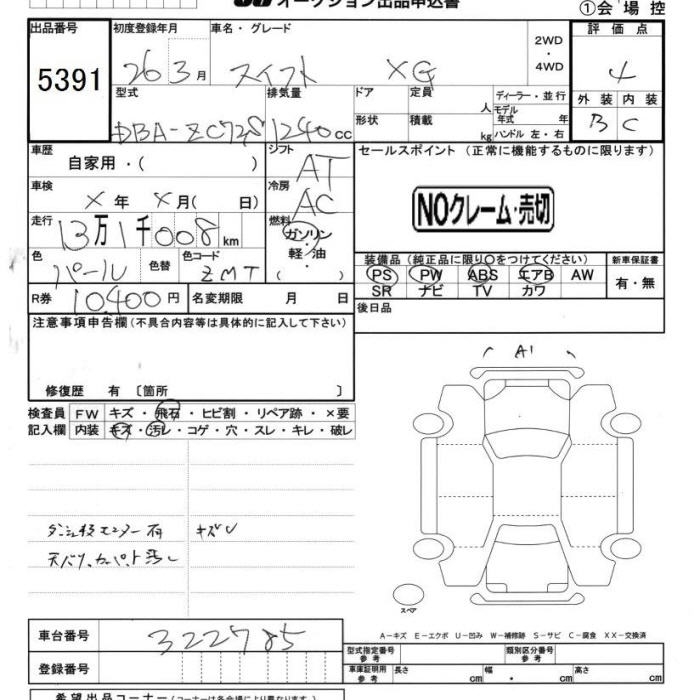 オークション出品申込書
①会場控
出品番号 初度登録年月 車名・グレード 2WD・4WD 評価点
5391 26 3月 スイフト XG 4
型式 排気量 ドア 定員 人 ディーラー・並行 外装 内装
DBA-ZC72S 1240cc 形状 積載 kg モデル年式 年 ハンドル 左・右 B C
車歴 シフト セールスポイント (正常に機能するものに限ります)
自家用・( ) AT
車検 冷房 NOクレーム・売切
×年 ×月( 日) AC
走行 燃料
13万1千008km ガソリン・軽油
( )
色 パール 色替 色コード ZMT
装備品(純正品に限り○をつけてください) 新車保証書
PS PW ABS エアB AW 有・無
SR ナビ TV カワ
R券 10,400円 名変期限 月 日
後日品
注意事項申告欄(不具合内容等は具体的に記入して下さい)
修復歴 有 〔箇所 〕
A1
検査員 FW キズ・飛石・ヒビ割・リペア跡・×要
記入欄 内装 キズ・汚レ・コゲ・穴・スレ・キレ・破レ
キズU
スペア
A-キズ E-エクボ U-凹み W-補修跡 S-サビ C-腐食 XX-交換済
車台番号 322785
型式指定番号 参考 類別区分番号 参考
登録番号
車庫証明用 参考 長さ cm 幅 cm 高さ cm
希望出品コーナー(コーナーは各会場により異なります)